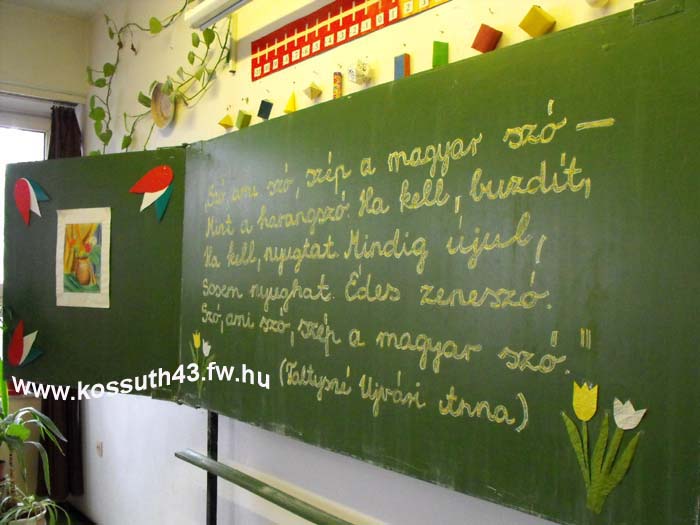 „Szó, ami szó, szép a magyar szó –
Mint a harangszó. Ha kell, buzdít,
Ha kell, nyugtat. Mindig újul,
Sosem nyughat. Édes zeneszó.
Szó, ami szó, szép a magyar szó."
(Faltysné Ujvári Anna)
www.kossuth43.fw.hu